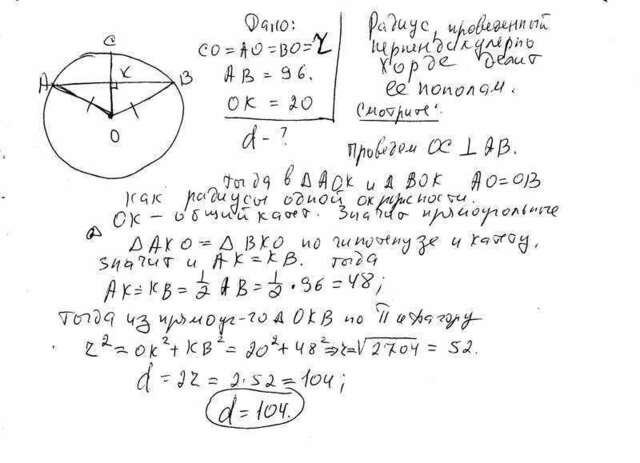 C
A
K
B
O
Дано:
CO = AO = BO = r
AB = 96.
OK = 20
d - ?
Радиус, проведенный
перпендикулярно
хорде делит
ее пополам.
Смотрите:
Проведем OC ⊥ AB.
Тогда в △AOK и △BOK AO=OB
как радиусы одной окружности.
OK – общий катет. Значит прямоугольные
△AKO = △BKO по гипотенузе и катету,
значит и AK = KB. Тогда
AK = KB = 1/2 AB = 1/2 · 96 = 48;
Тогда из прямоуг-го △OKB по Пифагору
r² = OK² + KB² = 20² + 48² ⇒ r = √2704 = 52.
d = 2r = 2·52 = 104;
d = 104.